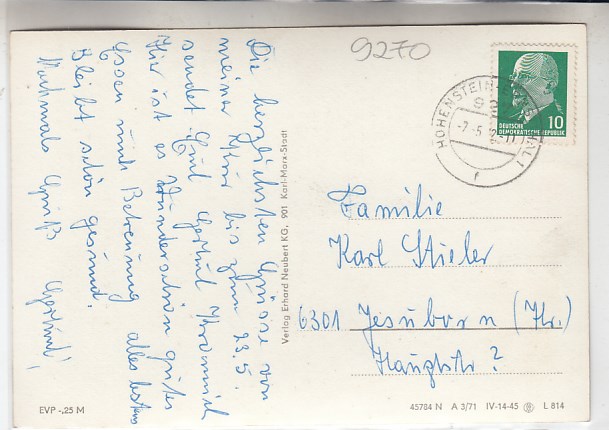 9270
Die herzlichsten Grüsse von
meiner Kur bis zum 23.5.
sendet Euch Gertrud
Hier ist es wunderschön gutes
Essen und Betreuung alles bestens
Bleibt schön gesund.
Nochmals Gruß Gertrud!
Verlag Erhard Neubert KG, 901 Karl-Marx-Stadt
HOHENSTEIN-
DEUTSCHE
DEMOKRATISCHE REPUBLIK
10
Familie
Karl Stieler
6301 Jesuborn (Thr.)
Hauptstr ?
EVP -,25 M
45784 N A 3/71 IV-14-45 L 814